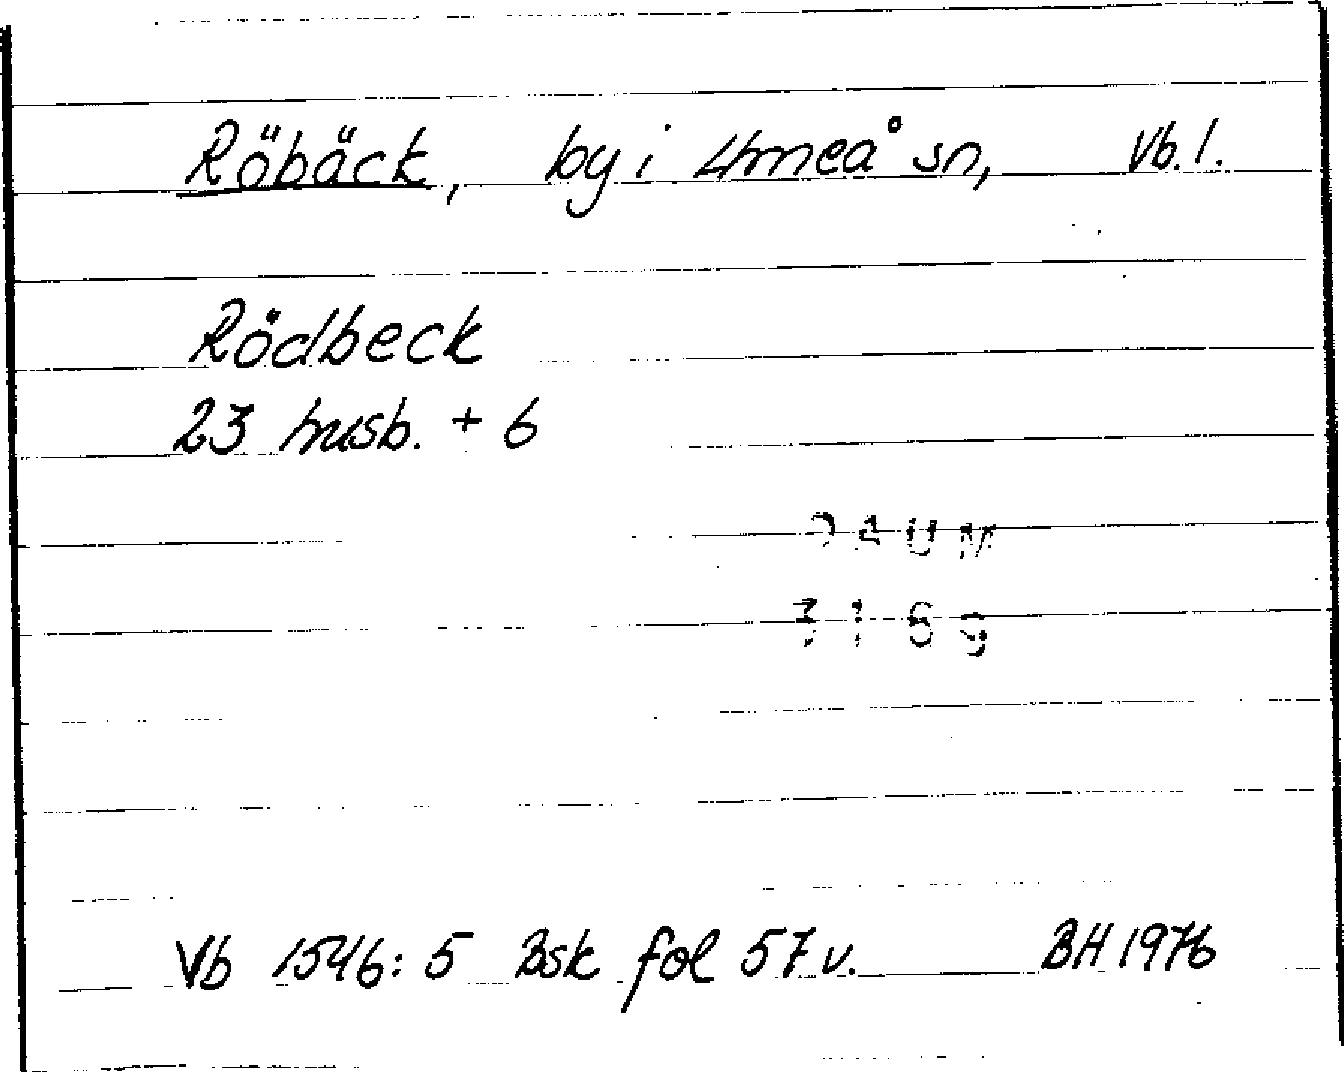 Röbäck, by i Umeå sn, Vb. l.
Rödbeck
23 husb. + 6
DAUM
3169
Vb 1546:5 Bsk fol 57 v. BH 1976